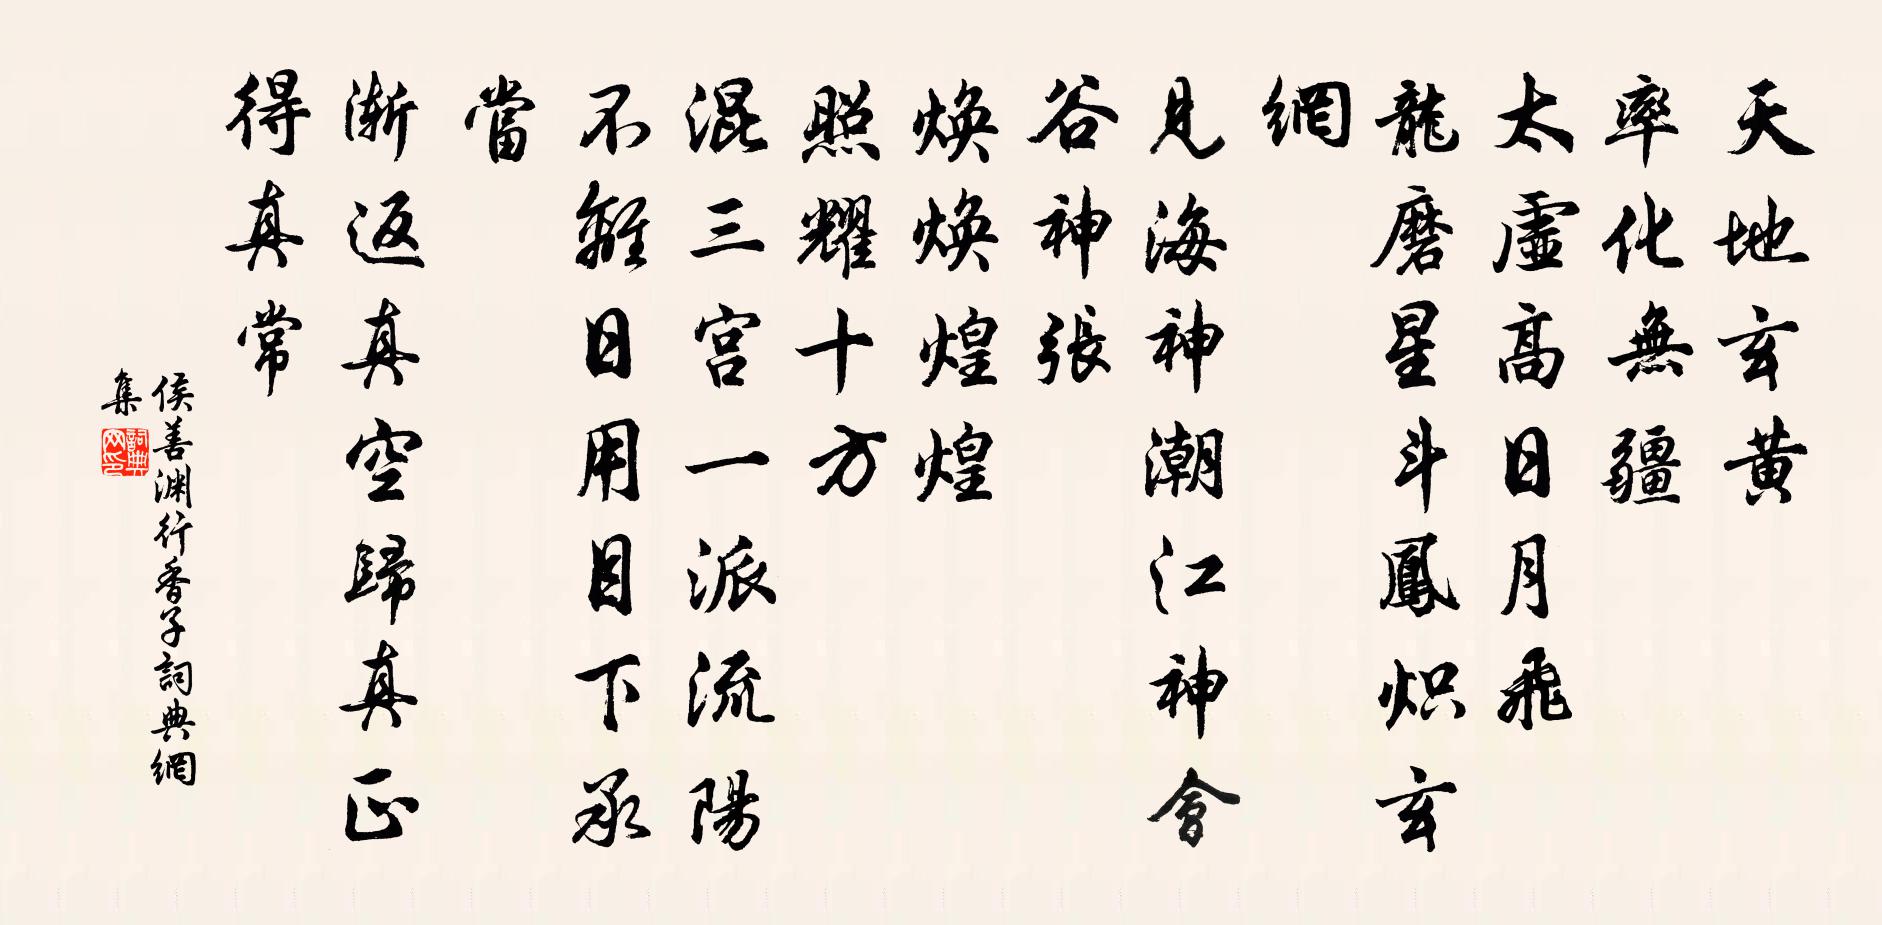 天地玄黃
率化無疆
太虛高日月飛
龍磨星斗鳳炽玄
網
見海神潮江神會
谷神張
煥煥煌煌
照耀十方
混三宮一派流陽
不離日用目下承
當
漸返真空歸真正
得真常
侯善淵行香子詞典網
集
詞典網印